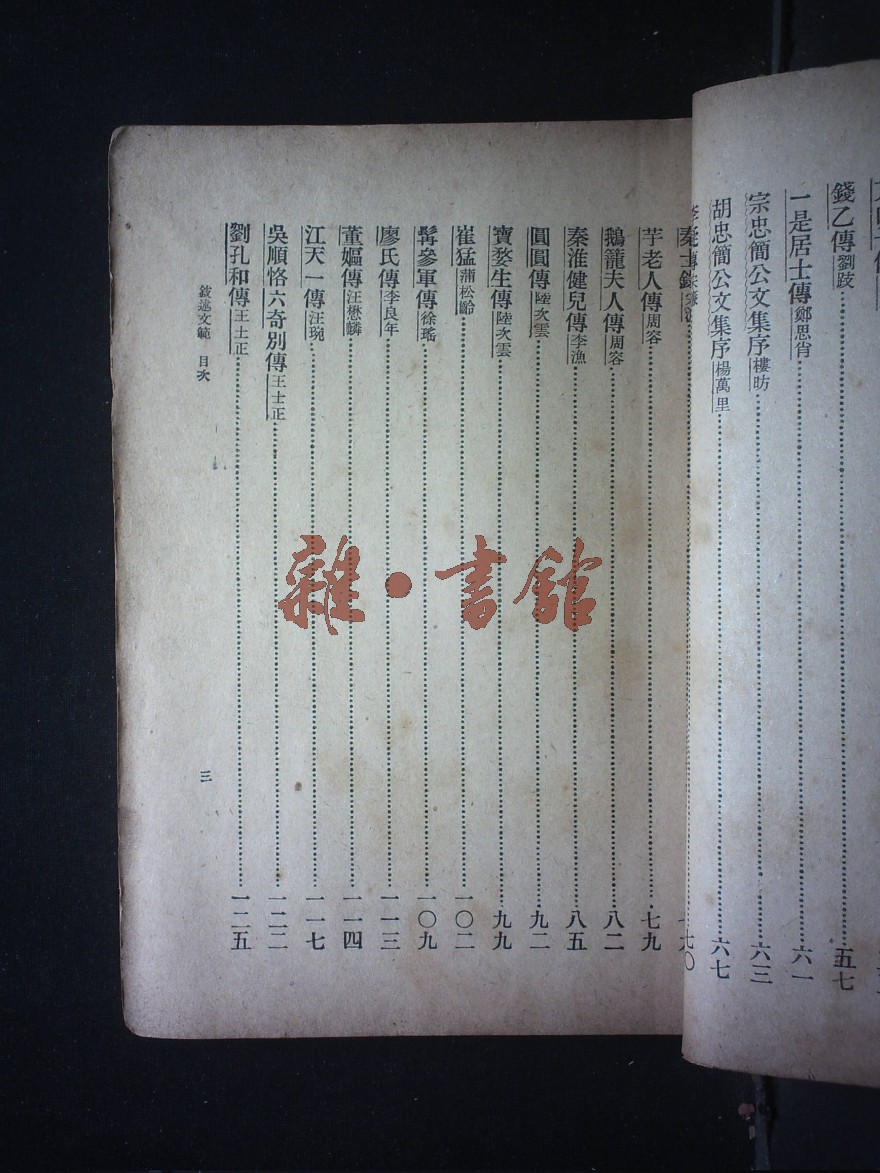 錢乙傳劉跂……五七
一是居士傳鄭思肖……六一
宗忠簡公文集序樓昉……六三
胡忠簡公文集序楊萬里……六七
七〇
芋老人傳周容……七九
鵝籠夫人傳周容……八二
秦淮健兒傳李漁……八五
圓圓傳陸次雲……九二
寶婺生傳陸次雲……九九
崔猛蒲松齡……一〇二
髯參軍傳徐瑤……一〇九
廖氏傳李良年……一一三
董嫗傳汪懋麟……一一四
江天一傳汪琬……一一七
吳順恪六奇別傳王士正……一二二
劉孔和傳王士正……一二五
敍述文範 目次
三
雜·書館